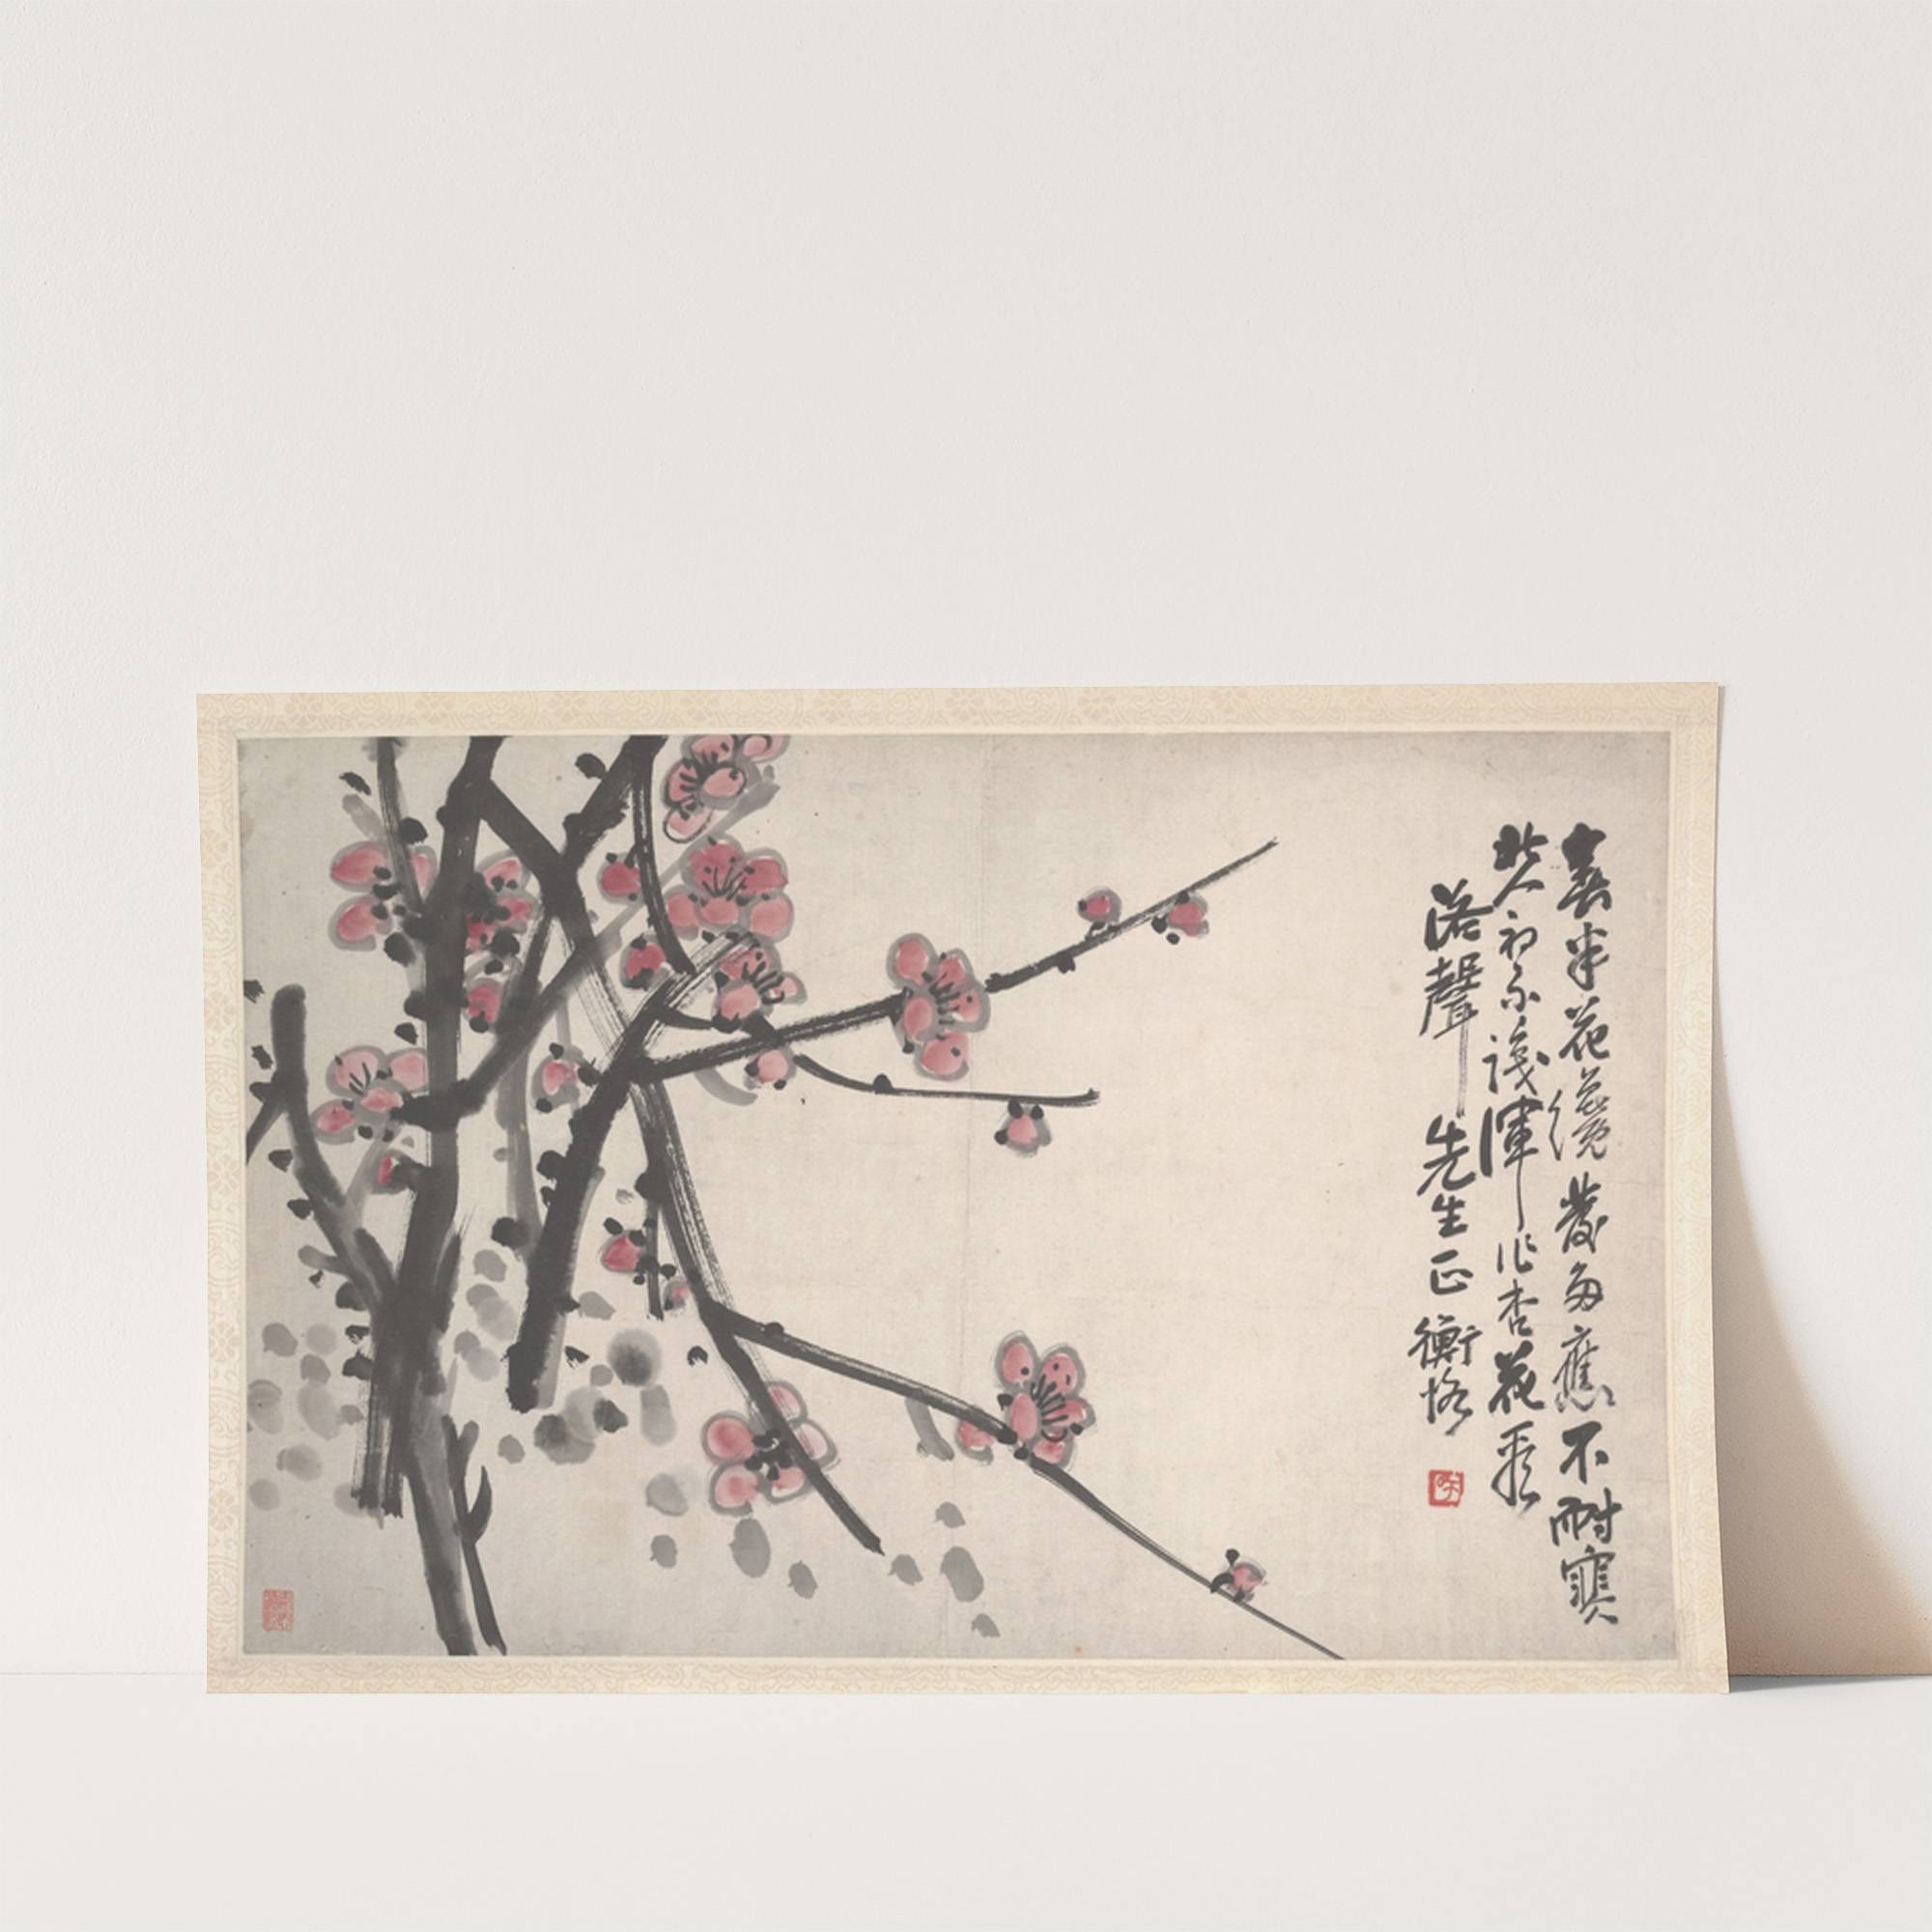 春半花纔發多應不耐寒
北人初不識渾作杏花看
洛聲先生正衡恪